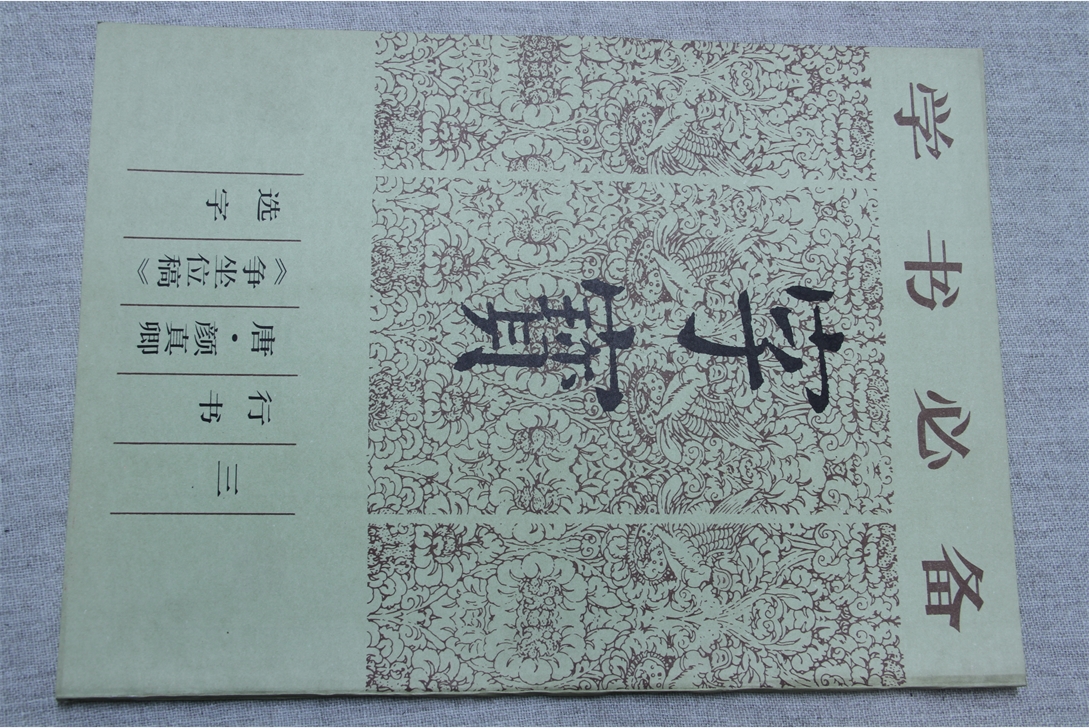 学书必备
字寶
三
行书
唐·颜真卿
《争坐位稿》
选字